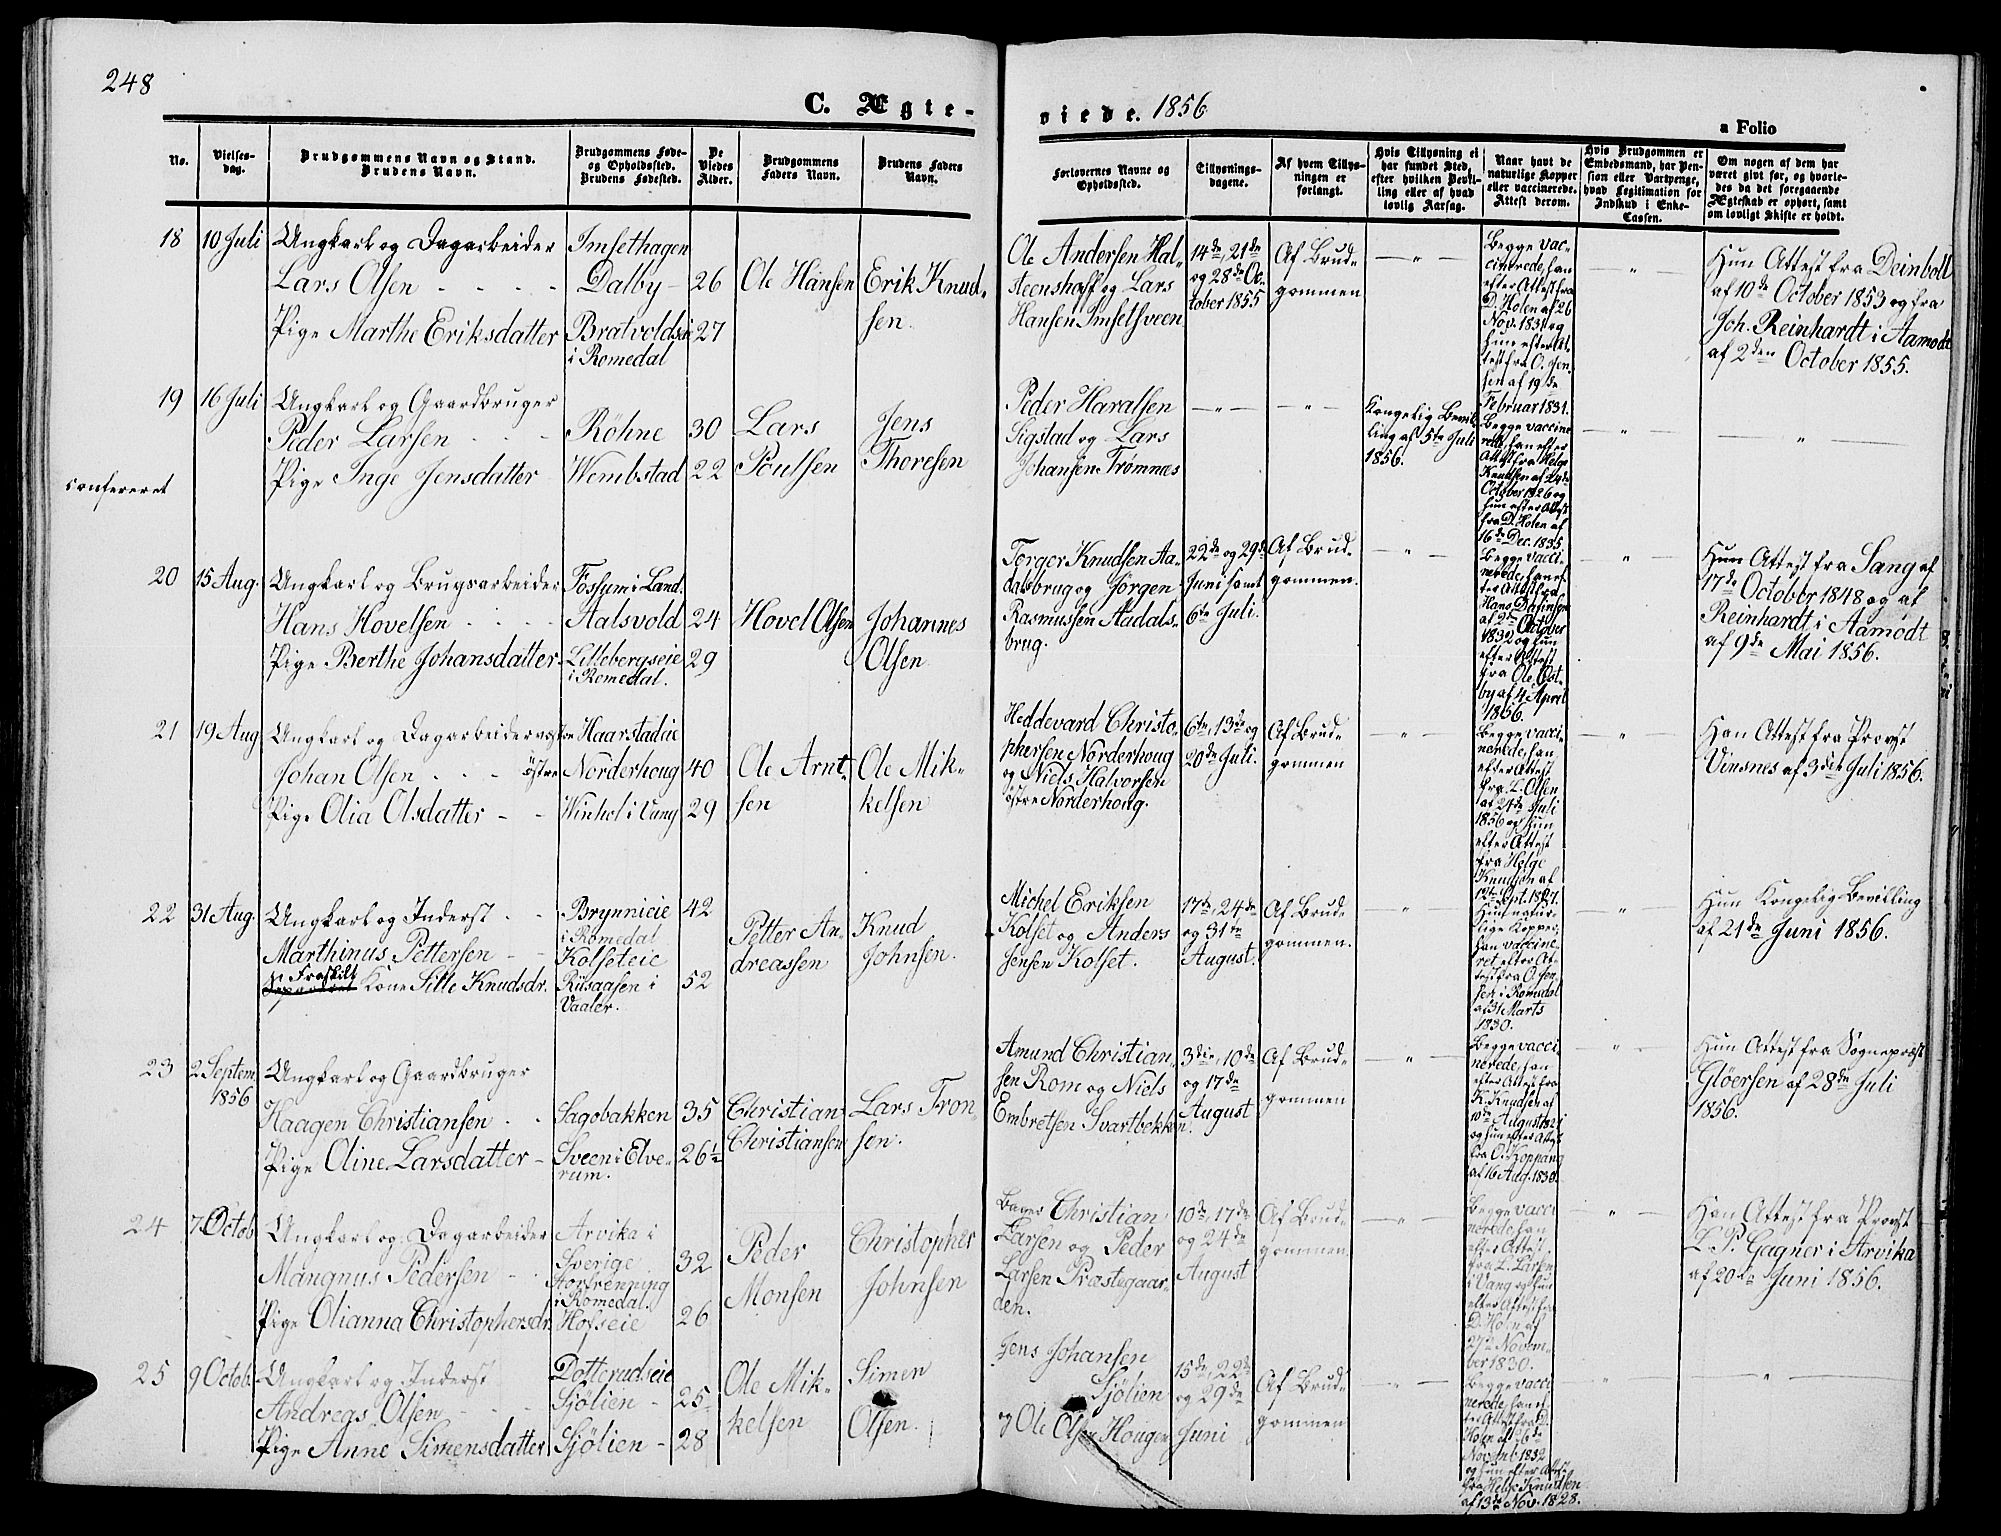 248
C. Ægte-
viede. 1856
a Folio
No.
Vielses-
dag.
Brudgommens Navn og Stand.
Brudens Navn.
Brudgommens Føde-
og Opholdssted.
Brudens Fødested.
De
Viedes
Alder.
Brudgommens
Faders Navn.
Brudens Faders
Navn.
Forlovernes Navne og
Opholdssted.
Tillysnings-
dagene.
Af hvem Tillys-
ningen er
forlangt.
Hvis Tillysning ei
har fundet Sted,
efter hvilken Bevil-
ling eller af hvad
lovlig Aarsag.
Naar havt de
naturlige Kopper
eller vaccinerede.
Attest derom.
Hvis Brudgommen er
Embedsmand, har Pen-
sion eller Vartpenge,
hvad Legitimation for
Indskud i Enke-
Cassen.
Om nogen af dem har
været givt før, og hvorle-
des da det foregaaende
Ægteskab er ophørt, samt
om lovligt Skifte er holdt.
18
10 Juli
Ungkarl og Dagarbeider
Lars Olsen
Pige Marthe Eriksdatter
Imsethagen
Dalby
Bratvoldseie
i Romedal
26
27
Ole Hansen
Erik Knud-
sen.
Ole Andersen Hal-
steenshoff og Lars
Hansen Imselsveen
14de, 21de
og 28de Oc-
tober 1855
Af Brud-
gommen
Begge vac-
cinerede, han
efter Attest fra
D. Holen af 26
Nov. 1831 og
hun efter At-
test fra O. Jen-
sen af 19de
Februar 1831.
Hun Attest fra Deinboll
af 10de October 1853 og fra
Joh. Reinhardt i Aamodt
af 2den October 1855.
19
16 Juli
Ungkarl og Gaardbruger
Peder Larsen
Pige Inge Jensdatter
Røhne
Wembstad
30
22
Lars
Poulsen
Jens
Thoresen
Peder Haralsen
Sigstad og Lars
Johansen Trømnæs
Kongelig Bevil-
ling af 5te Juli
1856.
Begge vaccine
rede, han efter
Attest fra Helge
Knudsen af 24de
October 1826 og
hun efter Attest
fra D. Holen af
16de Dec. 1835
confereret
20
15 Aug.
Ungkarl og Brugsarbeider
Hans Hovelsen
Pige Berthe Johansdatter
Fossum i Land.
Aalsvold
Lillebergseie
i Romedal.
24
29
Hovel Olsen
Johannes
Olsen
Torger Knudsen Aa-
dalsbrug og Jørgen
Rasmussen Aadals-
brug.
22de og 29de
Juni samt
6te Juli.
Af Brud-
gommen.
Begge vacci-
nerede, han ef-
ter Attest fra
Hans
af 2de October
1832 og hun
efter Attest
fra Ole Øst-
by af 4 April
1856.
Hun Attest fra Sang af
17de October 1848 og af
Reinhardt i Aamodt
af 9de Mai 1856.
21
19 Aug
Ungkarl og Dagarbeider vestre
Johan Olsen østre
Pige Olia Olsdatter
Haarstadeie
Norderhoug
Winhol i Vang
40
29
Ole Arnt-
sen
Ole Mik-
kelsen
Heddevard Christo-
phersen Norderhoug
og Niels Halvorsen
østre Norderhoug.
6te, 13de og
20de Juli.
Af Brud-
gommen
Begge vacci-
nerede, han
efter Attest
fra L. Olsen
af 24de Juli
1856 og hun
efter Attest
fra Helge
Knudsen af
12te Sept. 1827.
Han Attest fra Provst
Vinsnes af 3die Juli 1856.
22
31 Aug.
Ungkarl og Inderst
Marthinus Pettersen
Fraskilt
Separeret Kone Sille Knudsdr.
Brynnieie
i Romedal
Kolseteie
Riisaasen i
Vaaler.
42
52
Petter An-
dreassen
Knud
Johnsen.
Michel Eriksen
Kolset og Anders
Jensen Kolset.
17de, 24de
og 31te
August.
Af Brud-
gommen.
Hun natur-
lige Kopper,
han vaccine-
ret efter At-
test fra O. Jen-
sen i Romedal
af 31 Marts
1830.
Hun Kongelig Bevilling
af 21de Juni 1856.
23
2 Septem.
1856
Ungkarl og Gaardbruger
Haagen Christiansen
Pige Oline Larsdatter
Sagobakken
Sveen i Elve-
rum.
35
26½
Christian
Christiansen
Lars Tron-
sen.
Amund Christian-
sen Rom og Niels
Embretsen Svartbekken.
3die, 10de
og 17de
August
Af Brud-
gommen
Begge vacci-
nerede, han
efter Attest fra
K. Knudsen af
10de August 1821
og hun efter Attest
fra O. Koppang
af 16 Aug. 1830.
Hun Attest fra Sognepræst
Gløersen af 28de Juli
1856.
24
7 Octob
Ungkarl og Dagarbeider
Mangnus Pedersen
Pige Olianna Christophersdr.
Arvika i
Sverige
Storbrenning
i Romedal.
Hofseie
32
26
Peder
Monsen
Christopher
Johnsen
Bager Christian
Larsen og Peder
Larsen Præstegaar-
den.
10de, 17de
og 24de
August
Af Brud-
gommen
Begge vacci
nerede, han
efter Attest
fra L. Larsen
i Vang og hun
efter Attest fra
D. Holen af
27de Novem-
ber 1830.
Han Attest fra Provst
L. P. Gagner i Arvika
af 20de Juni 1856.
25
9 Octob.
Ungkarl og Inderst
Andreas Olsen
Pige Anne Simensdatter
Dotterudseie
Sjølien
Sjølien
25
28
Ole Mik-
kelsen
Simen
Olsen.
Jens Johansen
Sjølien
og Ole Olsen Hougen
15de, 22de
og 29de
Juni
Af Brud-
gommen
Begge vacci
nerede, han ef-
ter Attest fra D.
Holen af 6de
Novemb. 1832
og hun efter Attest
fra Helge Knudsen
af 13de Nov. 1828.